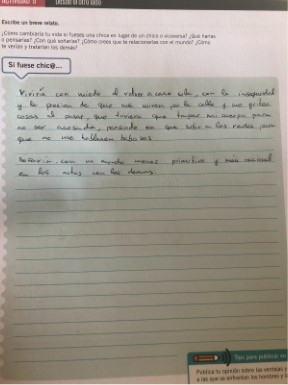 Escribe un breve relato.
¿Cómo cambiaría tu vida si fueses una chica en lugar de un chico o viceversa? ¿Qué harías
o pensarías? ¿Con qué soñarías? ¿Cómo crees que te relacionarías con el mundo? ¿Cómo
te verían y tratarían los demás?
Si fuese chic@...
Viviría con miedo al volver a casa sola, con la inseguridad
y la presión de que me miren por la calle y me griten
cosas al pasar, que tuviera que tapar mi cuerpo para
no ser acosada, pensando en que subir a las redes, para
que no me hablasen babosos
Soñaría con un mundo menos primitivo y más racional
en los actos con los demás.
Tips para publicar en
Publica tu opinión sobre las ventajas y
a las que se enfrentan los hombres y l